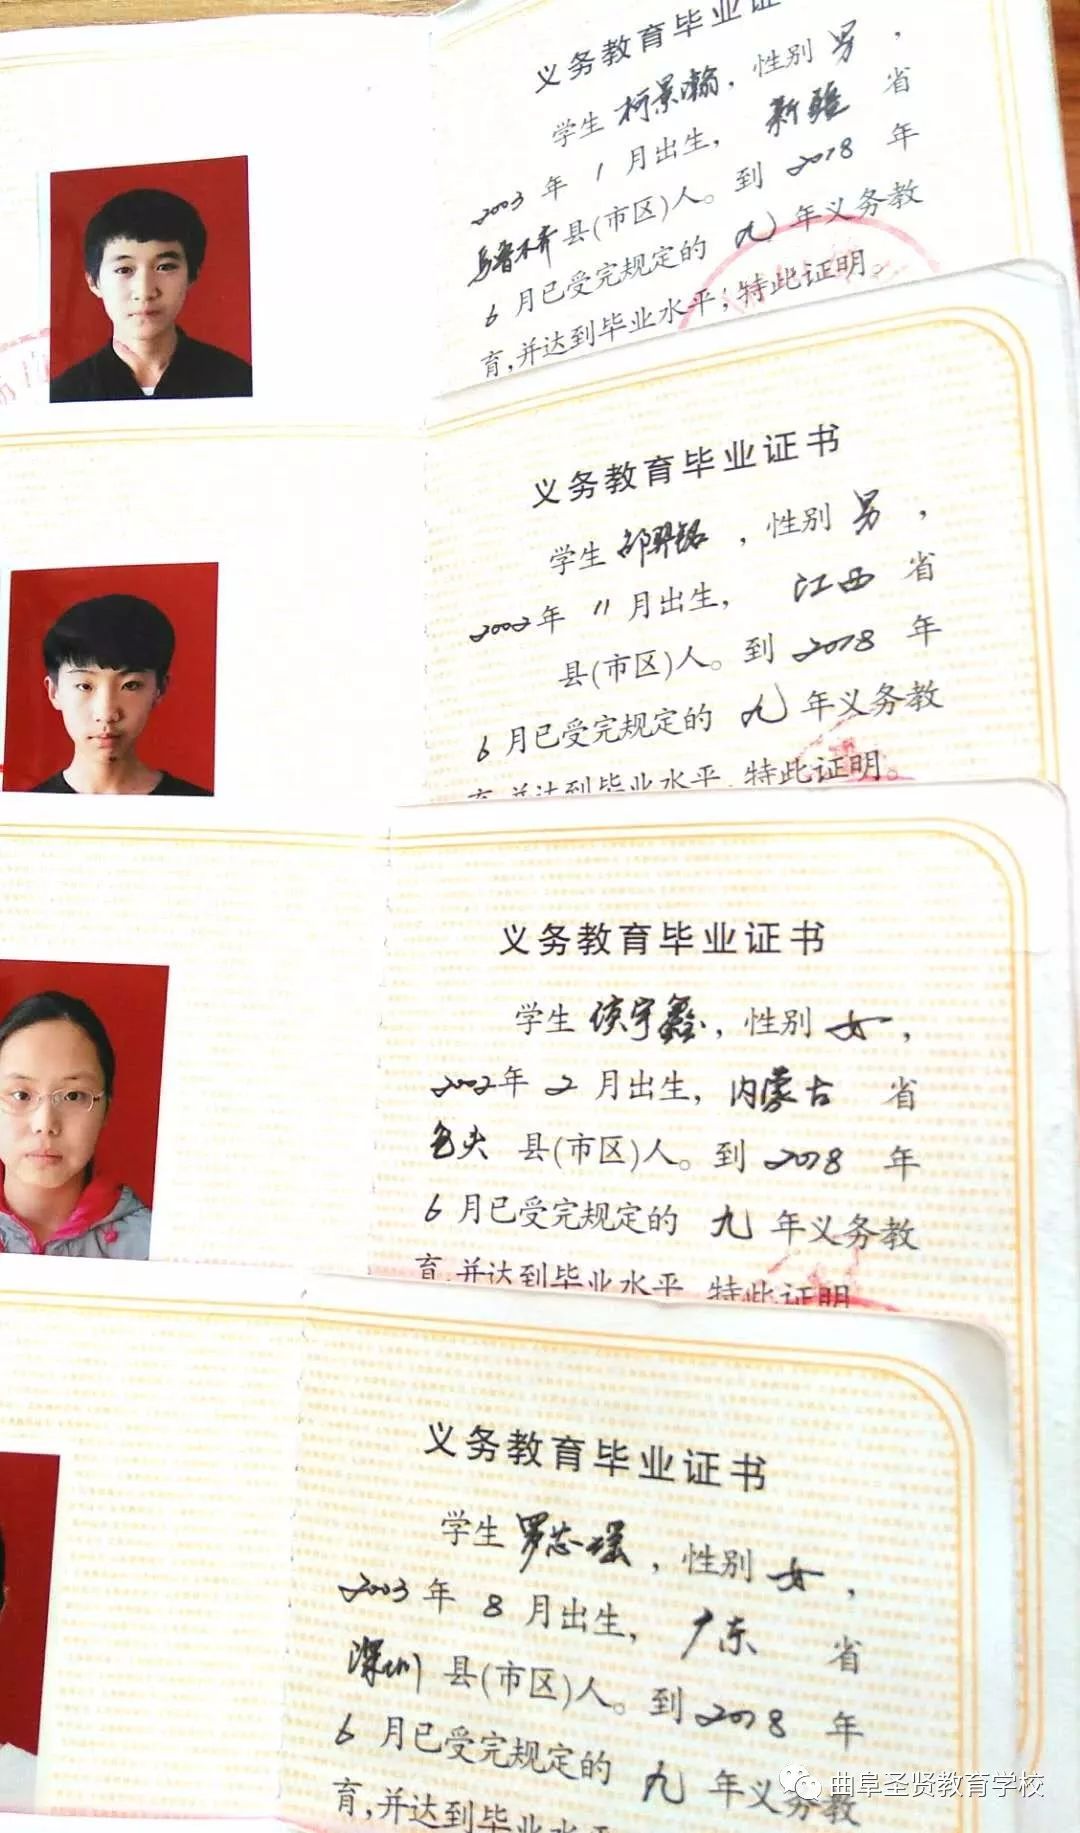 义务教育毕业证
学生 柯景瀚，性别 男，
2003 年 1 月出生，新疆 省
乌鲁木齐 县(市区)人。到 2018 年
6 月已受完规定的 九 年义务教
育,并达到毕业水平,特此证明
义务教育毕业证书
学生 邵羿铭，性别 男，
2002年 11 月出生，江西 省
县(市区)人。到 2018 年
6 月已受完规定的 九 年义务教
育,并达到毕业水平,特此证明。
义务教育毕业证书
学生 侯宇鑫，性别 女，
2002年 2 月出生，内蒙古 省
包头 县(市区)人。到 2018 年
6 月已受完规定的 九 年义务教
育,并达到毕业水平,特此证明
义务教育毕业证书
学生 罗芯瑶，性别 女，
2003 年 8 月出生，广东 省
深圳 县(市区)人。到 2018 年
6 月已受完规定的 九 年义务教
育,并达到毕业水平
曲阜圣贤教育学校